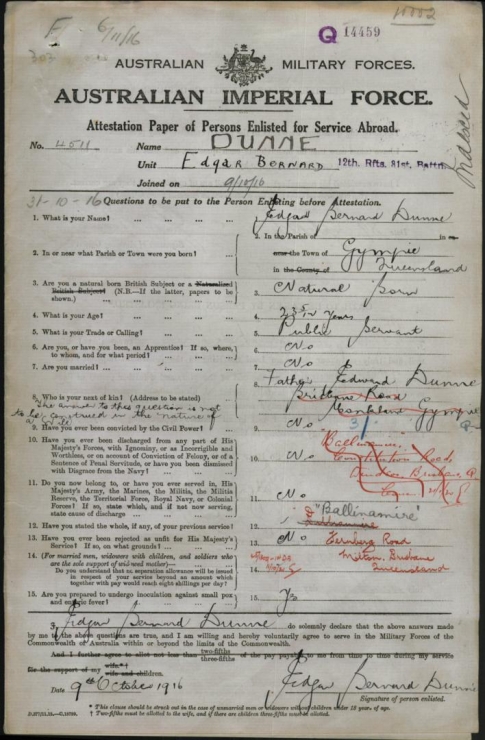 6/11/16
Q 14459
AUSTRALIAN MILITARY FORCES.
AUSTRALIAN IMPERIAL FORCE.
Attestation Paper of Persons Enlisted for Service Abroad.
Indexed
No. 4511 Name DUNNE
Unit Edgar BERNARD 12th. Rfts. 31st. Battn.
Joined on 9/10/16
31-10-16 Questions to be put to the Person Enlisting before Attestation.
1. What is your Name? ... ... ... Edgar Bernard Dunne
2. In or near what Parish or Town were you born? ... 2. In the Parish of in or
near the Town of Gympie
in the County of Queensland
3. Are you a natural born British Subject or a Naturalized
British Subject? (N.B.—If the latter, papers to be
shown.) ... ... ... 3. Natural born
4. What is your Age? ... ... ... 4. years
5. What is your Trade or Calling? ... ... ... 5. Public Servant
6. Are you, or have you been, an Apprentice? If so, where,
to whom, and for what period? ... ... 6. No
7. Are you married? ... ... ... 7. No
8. Who is your next of kin? (Address to be stated) 8. Father Edward Dunne
Brisbane Road
Monkland Gympie
The answer to this question is not
to be construed in the nature of
a will
9. Have you ever been convicted by the Civil Power? ... 9. No
10. Have you ever been discharged from any part of His
Majesty's Forces, with Ignominy, or as Incorrigible and
Worthless, or on account of Conviction of Felony, or of a
Sentence of Penal Servitude, or have you been dismissed
with Disgrace from the Navy? ... ... 10. No
Road,
Brisbane
11. Do you now belong to, or have you ever served in, His
Majesty's Army, the Marines, the Militia, the Militia
Reserve, the Territorial Force, Royal Navy, or Colonial
Forces? If so, state which, and if not now serving,
state cause of discharge ... ... 11. No
12. Have you stated the whole, if any, of your previous service? 12.
"Ballinamire"
13. Have you ever been rejected as unfit for His Majesty's
Service? If so, on what grounds? ... ... 13. No
Fernberg Road
Milton, Brisbane
Queensland
14. (For married men, widowers with children, and soldiers who
are the sole support of widowed mother)—
Do you understand that no separation allowance will be issued
in respect of your service beyond an amount which
together with pay would reach eight shillings per day? 14.
15. Are you prepared to undergo inoculation against small pox
and enteric fever? ... ... 15. Yes
I, Edgar Bernard Dunne do solemnly declare that the above answers made
by me to the above questions are true, and I am willing and hereby voluntarily agree to serve in the Military Forces of the
Commonwealth of Australia within or beyond the limits of the Commonwealth.
And I further agree to allot not less than two-fifths
three-fifths of the pay payable to me from time to time during my service
for the support of my wife*
wife and children.
Date 9th October 1916 Edgar Bernard Dunne
Signature of person enlisted.
* This clause should be struck out in the case of unmarried men or widowers without children under 18 years of age.
† Two-fifths must be allotted to the wife, and if there are children three-fifths must be allotted.